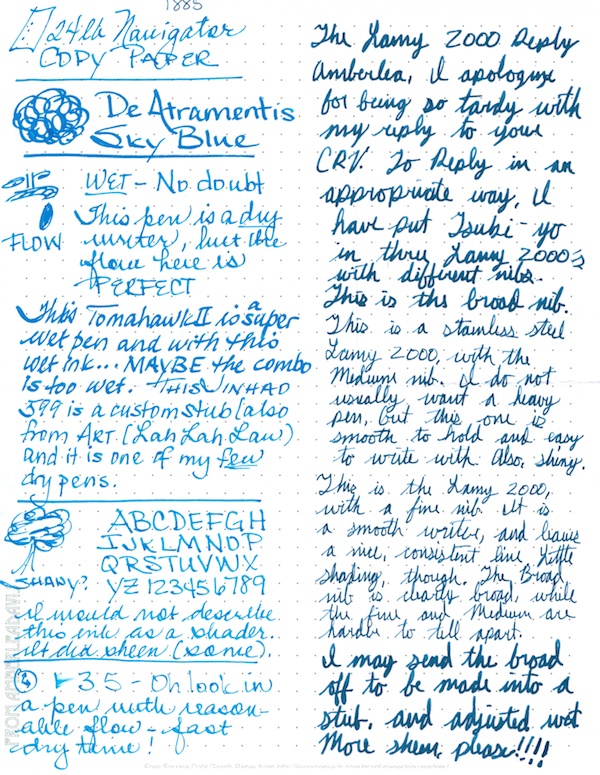 1885
24lb Navigator
COPY PAPER
De Atramentis
Sky Blue
WET - No doubt
This pen is a dry
writer, but the
flow here is
PERFECT
FLOW
This Tomahawk II is a super
wet pen and with this
wet ink... MAYBE the combo
is too wet. THIS JINHAO
599 is a custom stub (also
from ART. (Lah Lah Law)
and it is one of my few
dry pens.
ABCDEFGH
IJKLMNOP
QRSTUVWX
YZ 123456789
SHADY?
I would not describe
this ink as a shader.
It did sheen (some).
3.5 - Oh look in
a pen with reason-
able flow - fast
dry time!
FROM AMBERLEADAVI
The Lamy 2000 Reply
Amberlea, I apologize
for being so tardy with
my reply to your
CRV. To Reply in an
appropriate way, I
have put Tsuki-yo
in three Lamy 2000s
with different nibs.
This is the broad nib.
This is a stainless steel
Lamy 2000, with the
Medium nib. I do not
usually want a heavy
pen, but this one is
smooth to hold and easy
to write with. Also, shiny.
This is the Lamy 2000,
with a fine nib. It is
a smooth writer, and leaves
a nice, consistent line. Little
shading, though. The Broad
nib is clearly broad, while
the fine and Medium are
harder to tell apart.
I may send the broad
off to be made into a
stub, and adjusted wet
More sheen, please!!!!